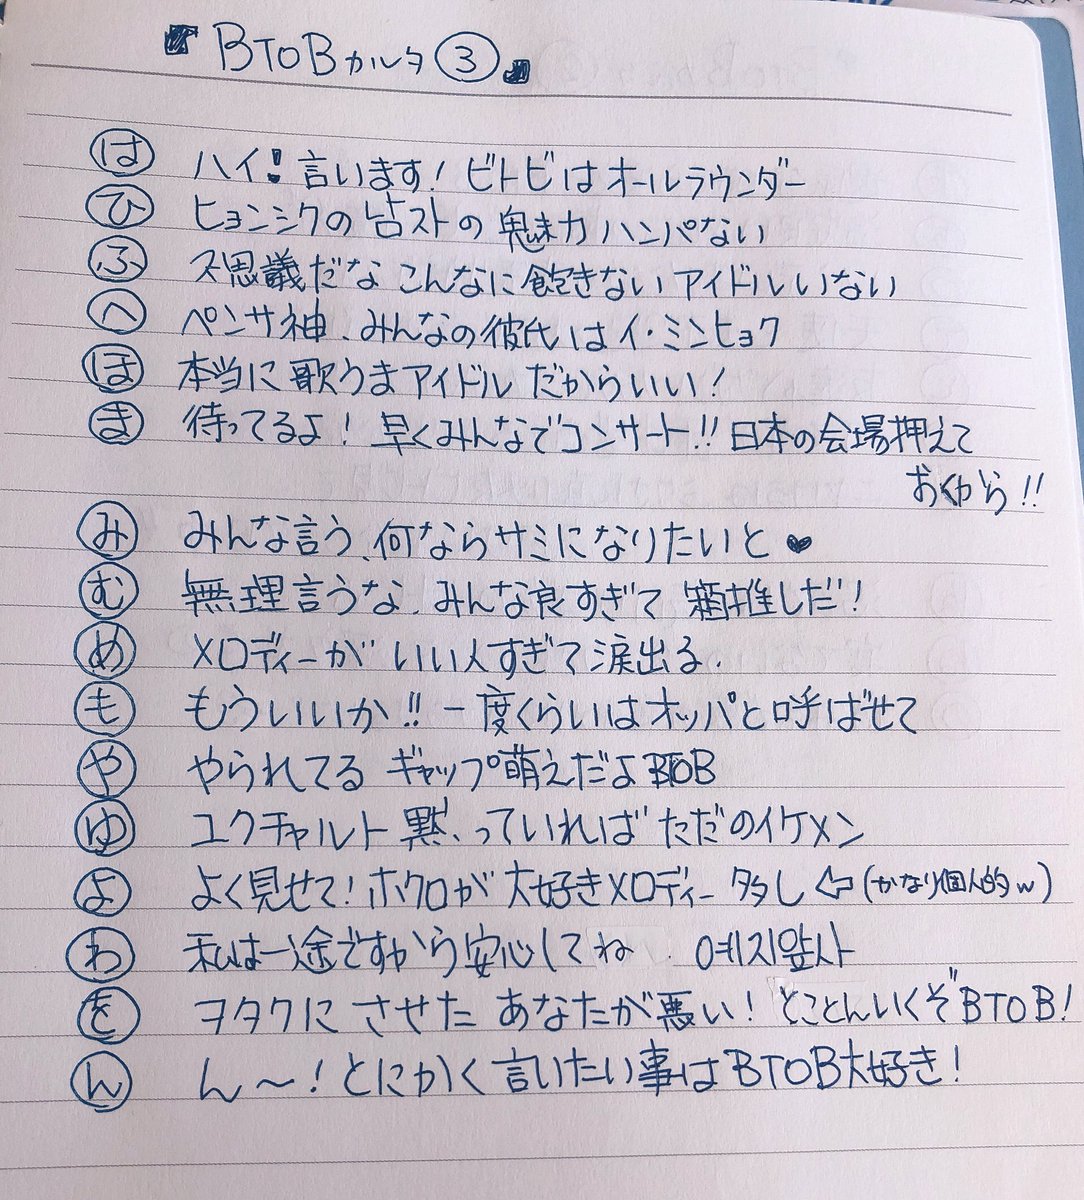 『BTOBカルタ③』
は ハイ!言います!ビトビはオールラウンダー
ひ ヒョンシクの뇸ストの魅力ハンパない
ふ 不思議だな こんなに飽きないアイドルいない
へ ペンサ神、みんなの彼氏はイ・ミンヒョク
ほ 本当に歌うまアイドルだからいい!
ま 待ってるよ!早くみんなでコンサート!!日本の会場押えて
おくから!!
み みんな言う、何ならサミになりたいと♥
む 無理言うな、みんな良すぎて箱推しだ!
め メロディーがいい人すぎて涙出る、
も もういいか!!一度くらいはオッパと呼ばせて
や やられてる ギャップ萌えだよBTOB
ゆ ユクチャルト黙っていればただのイケメン
よ よく見せて!ホクロが大好きメロディー多し⇦(かなり個人的w)
わ 私は一途ですから安心してね 예지앞사
を ヲタクにさせたあなたが悪い!とことんいくぞBTOB!
ん ん〜!とにかく言いたい事はBTOB大好き!